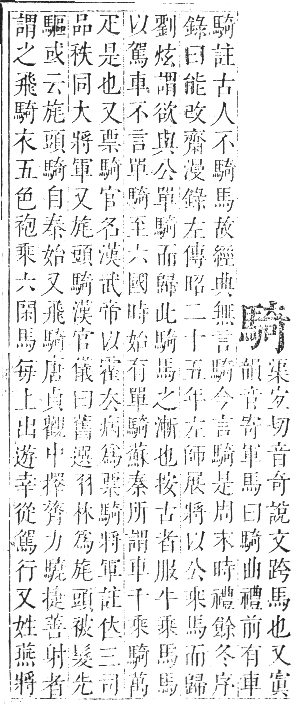 騎
渠宜切音奇說文跨馬也又寘
韻音寄軍馬曰騎曲禮前有車
騎註古人不騎馬故經典無言騎今言騎是周末時禮餘冬序
錄曰能改齋漫錄左傳昭二十五年左師展將以公乘馬而歸
劉炫謂欲與公單騎而歸此騎馬之漸也按古者服牛乘馬馬
以駕車不言單騎至六國時始有單騎蘇秦所謂車千乘騎萬
疋是也又票騎官名漢武帝以霍去病為票騎將軍註佚三司
品秩同大將軍又旄頭騎漢官儀曰舊選羽林為旄頭被髮先
驅或云旄頭騎自秦始又飛騎唐貞觀中擇膂力驍捷善射者
謂之飛騎衣五色袍乘六閑馬每上出遊幸從駕行又姓燕將